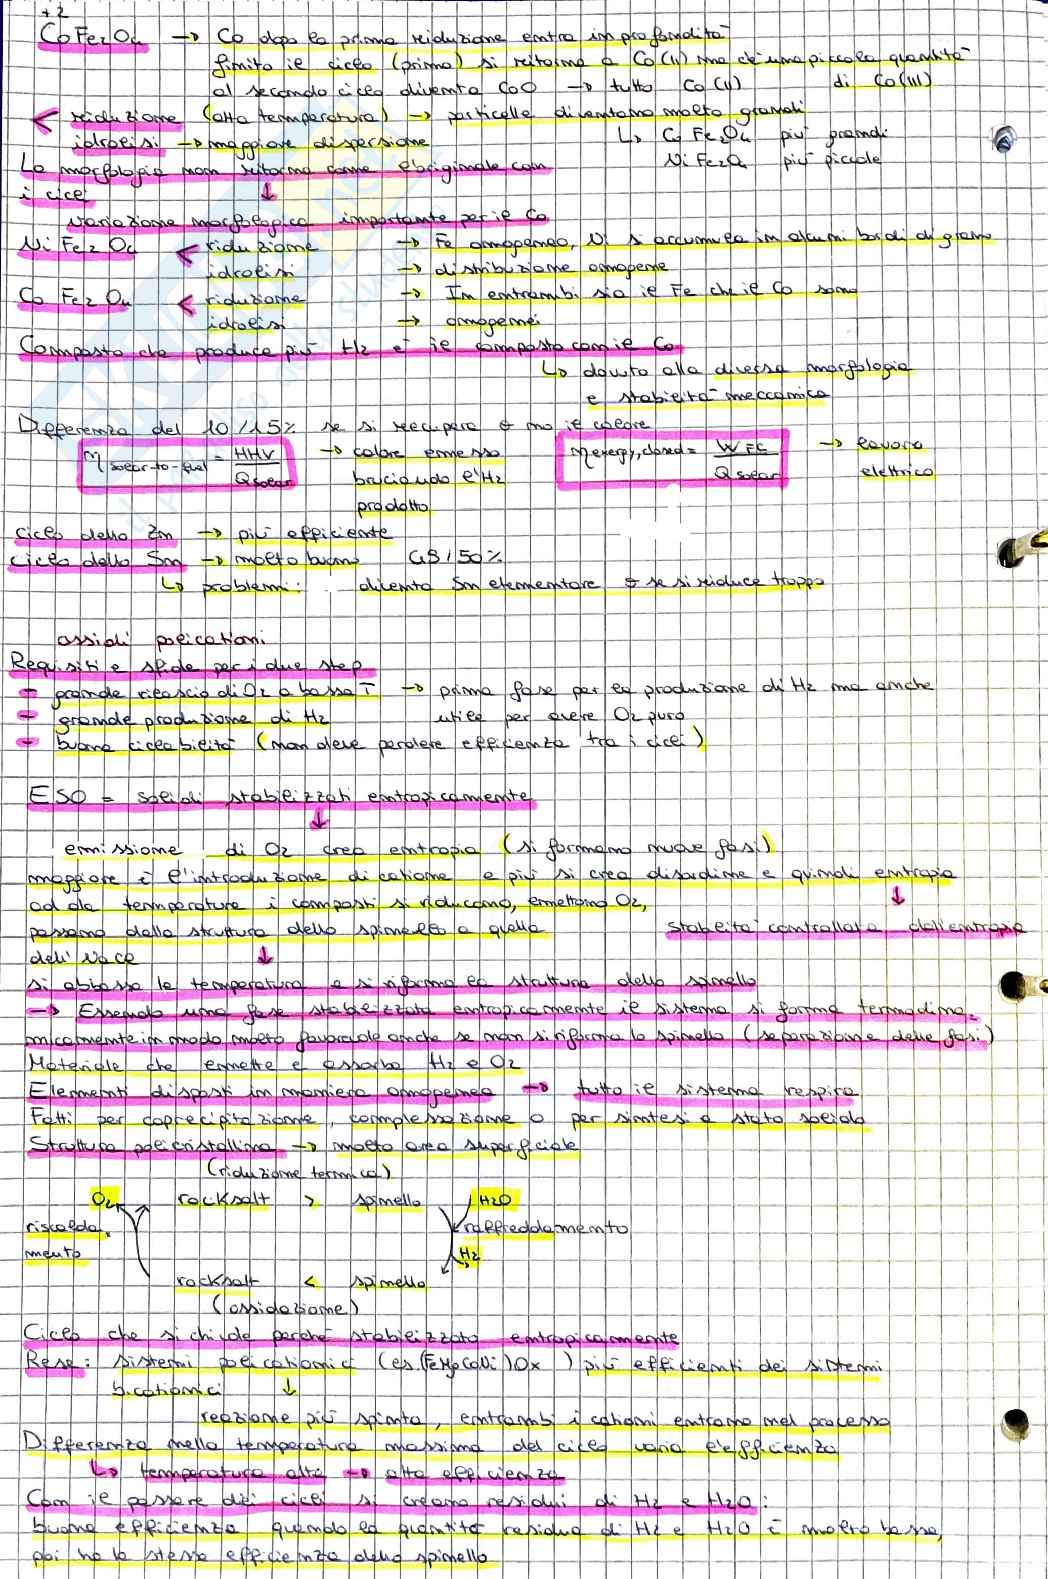 +2
CoFe2O4 → Co dopo la prima riduzione entra in profondità
finito il ciclo (primo) si ritorna a Co(II) ma c'è una piccola quantità
al secondo ciclo diventa CoO → tutto Co(II) di Co(III)
riduzione (alta temperatura) → particelle diventano molto grandi
idrolisi → maggiore dispersione ↳ CoFe2O4 più grandi
NiFe2O4 più piccole
La morfologia non ritorna come l'originale con
i cicli ↓
variazione morfologica importante per il Co
NiFe2O4 < riduzione → Fe omogeneo, Ni si accumula in alcuni bordi di grano
idrolisi → distribuzione omogenea
CoFe2O4 < riduzione → In entrambi sia il Fe che il Co sono
idrolisi → omogenei
Composto che produce più H2 è il composto con il Co
↳ dovuto alla diversa morfologia
e stabilità meccanica
Differenza del 10/15% se si recupera o no il calore
η solar-to-fuel = HHV / Qsolar → calore emesso bruciando l'H2 prodotto
η exergy, closed = WFC / Qsolar → lavoro elettrico
ciclo dello Zn → più efficiente
ciclo dello Sn → molto buono 45/50%
↳ problemi: diventa Sn elementare se si riduce troppo
ossidi policationi
Requisiti e sfide per i due step
- grande rilascio di O2 a bassa T → prima fase per la produzione di H2 ma anche
- grande produzione di H2 utile per avere O2 puro
- buona ciclabilità (non deve perdere efficienza tra i cicli)
ESO = solidi stabilizzati entropicamente
↓
emissione di O2 crea entropia (si formano nuove fasi)
maggiore è l'introduzione di catione e più si crea disordine e quindi entropia
ad alte temperature i composti si riducono, emettono O2, ↓
passano dalla struttura dello spinello a quella stabilità controllata dall'entropia
dell'NaCl ↓
si abbassa la temperatura e si riforma la struttura dello spinello
→ Essendo una fase stabilizzata entropicamente il sistema si forma termodina-
micamente in modo molto favorevole anche se non si riforma lo spinello (separazione delle fasi)
Materiale che emette e assorbe H2 e O2
Elementi disposti in maniera omogenea → tutto il sistema respira
Fatti per coprecipitazione, complessazione o per sintesi a stato solido
Struttura policristallina → molta area superficiale
(riduzione termica)
O2 rocksalt > spinello H2O
riscalda- raffreddamento
mento H2
rocksalt < spinello
(ossidazione)
Ciclo che si chiude perché stabilizzato entropicamente
Resa: sistemi policationici (es.(FeMgCoNi)Ox) più efficienti dei sistemi
bicationici ↓
reazione più spinta, entrambi i cationi entrano nel processo
Differenza nella temperatura massima del ciclo varia l'efficienza
↳ temperatura alta → alta efficienza
Con il passare dei cicli si creano residui di H2 e H2O:
buona efficienza quando la quantità residua di H2 e H2O è molto bassa,
poi ha la stessa efficienza dello spinello